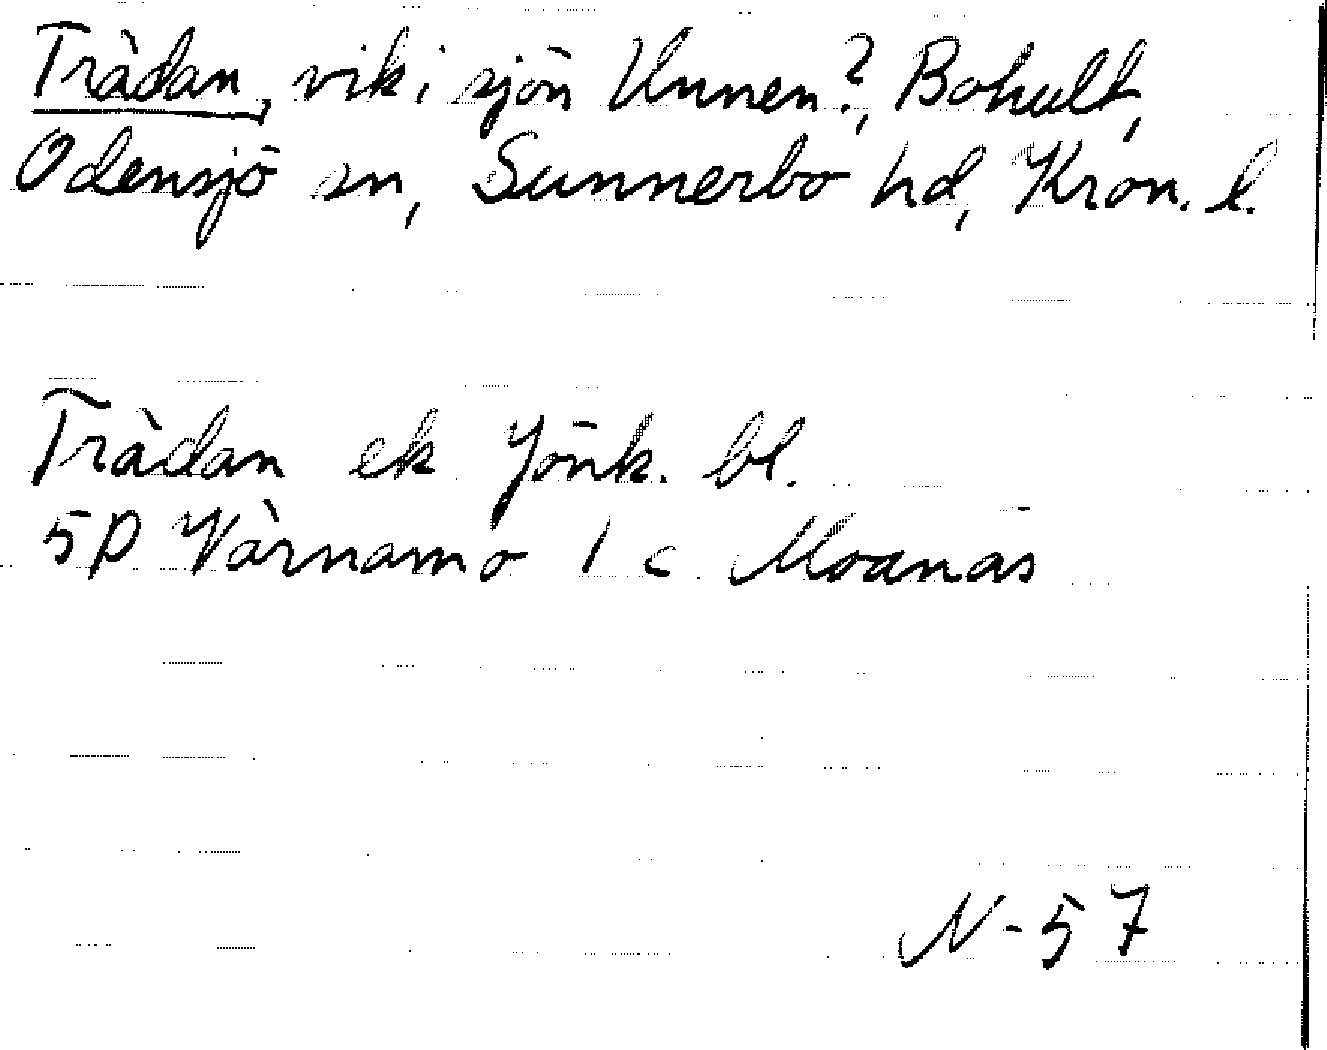 Trädan, vik i sjön Unnen?, Bohult,
Odensjö sn, Sunnerbo hd, Kron. l.
Trädan ek Jönk. bl.
5D Värnamo 1 c Moanäs
N-57